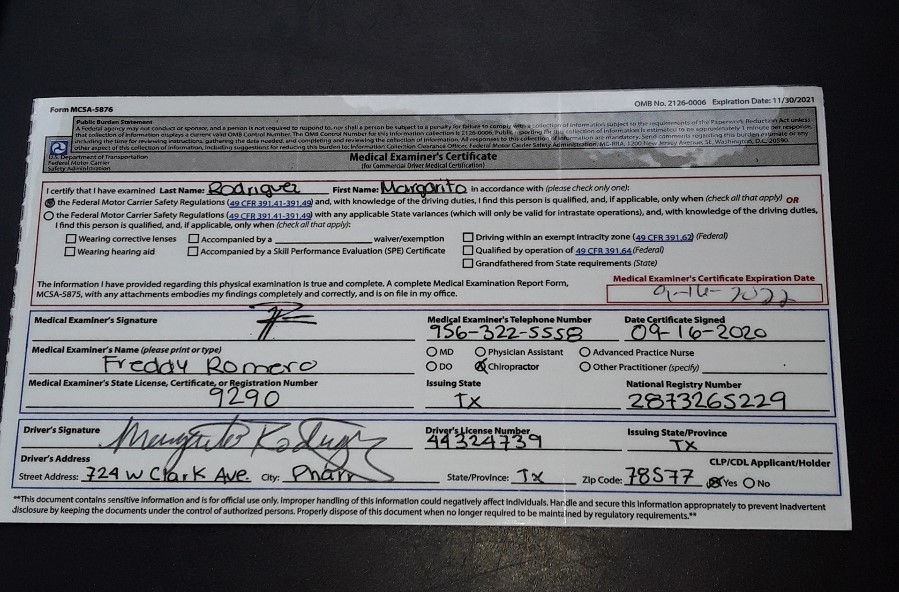 Form MCSA-5876
OMB No. 2126-0006 Expiration Date: 11/30/2021
Public Burden Statement
A Federal agency may not conduct or sponsor, and a person is not required to respond to, nor shall a person be subject to a penalty for failure to comply with a collection of information subject to the requirements of the Paperwork Reduction Act unless
that collection of information displays a current valid OMB Control Number. The OMB Control Number for this information collection is 2126-0006. Public reporting for this collection of information is estimated to be approximately 1 minute per response,
including the time for reviewing instructions, gathering the data needed, and completing and reviewing the collection of information. All responses to this collection of information are mandatory. Send comments regarding this burden estimate or any
other aspect of this collection of information, including suggestions for reducing this burden to: Information Collection Clearance Officer, Federal Motor Carrier Safety Administration, MC-RRA, 1200 New Jersey Avenue, SE, Washington, D.C. 20590.
U.S. Department of Transportation
Federal Motor Carrier
Safety Administration
Medical Examiner's Certificate
(for Commercial Driver Medical Certification)
I certify that I have examined Last Name: Rodriguez First Name: Margarito in accordance with (please check only one):
the Federal Motor Carrier Safety Regulations (49 CFR 391.41-391.49) and, with knowledge of the driving duties, I find this person is qualified, and, if applicable, only when (check all that apply) OR
the Federal Motor Carrier Safety Regulations (49 CFR 391.41-391.49) with any applicable State variances (which will only be valid for intrastate operations), and, with knowledge of the driving duties,
I find this person is qualified, and, if applicable, only when (check all that apply):
Wearing corrective lenses Accompanied by a waiver/exemption Driving within an exempt intracity zone (49 CFR 391.62) (Federal)
Wearing hearing aid Accompanied by a Skill Performance Evaluation (SPE) Certificate Qualified by operation of 49 CFR 391.64 (Federal)
Grandfathered from State requirements (State)
The information I have provided regarding this physical examination is true and complete. A complete Medical Examination Report Form,
MCSA-5875, with any attachments embodies my findings completely and correctly, and is on file in my office.
Medical Examiner's Certificate Expiration Date
9-16-2022
Medical Examiner's Signature Medical Examiner's Telephone Number Date Certificate Signed
956-322-5558 09-16-2020
Medical Examiner's Name (please print or type) MD Physician Assistant Advanced Practice Nurse
Freddy Romero DO Chiropractor Other Practitioner (specify)
Medical Examiner's State License, Certificate, or Registration Number Issuing State National Registry Number
9290 TX 2873265229
Driver's Signature Driver's License Number Issuing State/Province
Margarito Rodriguez 44324739 TX
Driver's Address CLP/CDL Applicant/Holder
Street Address: 724 W Clark Ave. City: Pharr State/Province: TX Zip Code: 78577 Yes No
**This document contains sensitive information and is for official use only. Improper handling of this information could negatively affect individuals. Handle and secure this information appropriately to prevent inadvertent
disclosure by keeping the documents under the control of authorized persons. Properly dispose of this document when no longer required to be maintained by regulatory requirements.**